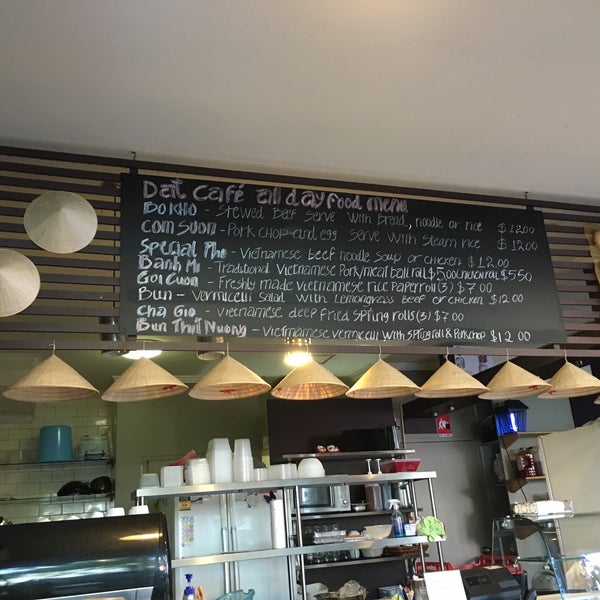 Dat Café all day food menu
BO KHO - Stewed Beef Serve With Bread, noodle or rice $12.00
COM SUON - Pork CHOP and egg Serve with Steam rice $12.00
Special Pho - Vietnamese Beef noodle Soup or CHICKEN $12.00
Banh Mi - Traditional Vietnamese Pork/meat ball roll $5.00 chicken roll $5.50
Goi Cuon - Freshly made vietnamese rice Paper roll (3) $7.00
Bun - Vermicelli Salad With Lemongrass Beef or chicken $12.00
Cha Gio - Vietnamese deep fried Spring rolls (3) $7.00
Bun Thit Nuong - Vietnamese vermicelli with Spring roll & Pork chop $12.00